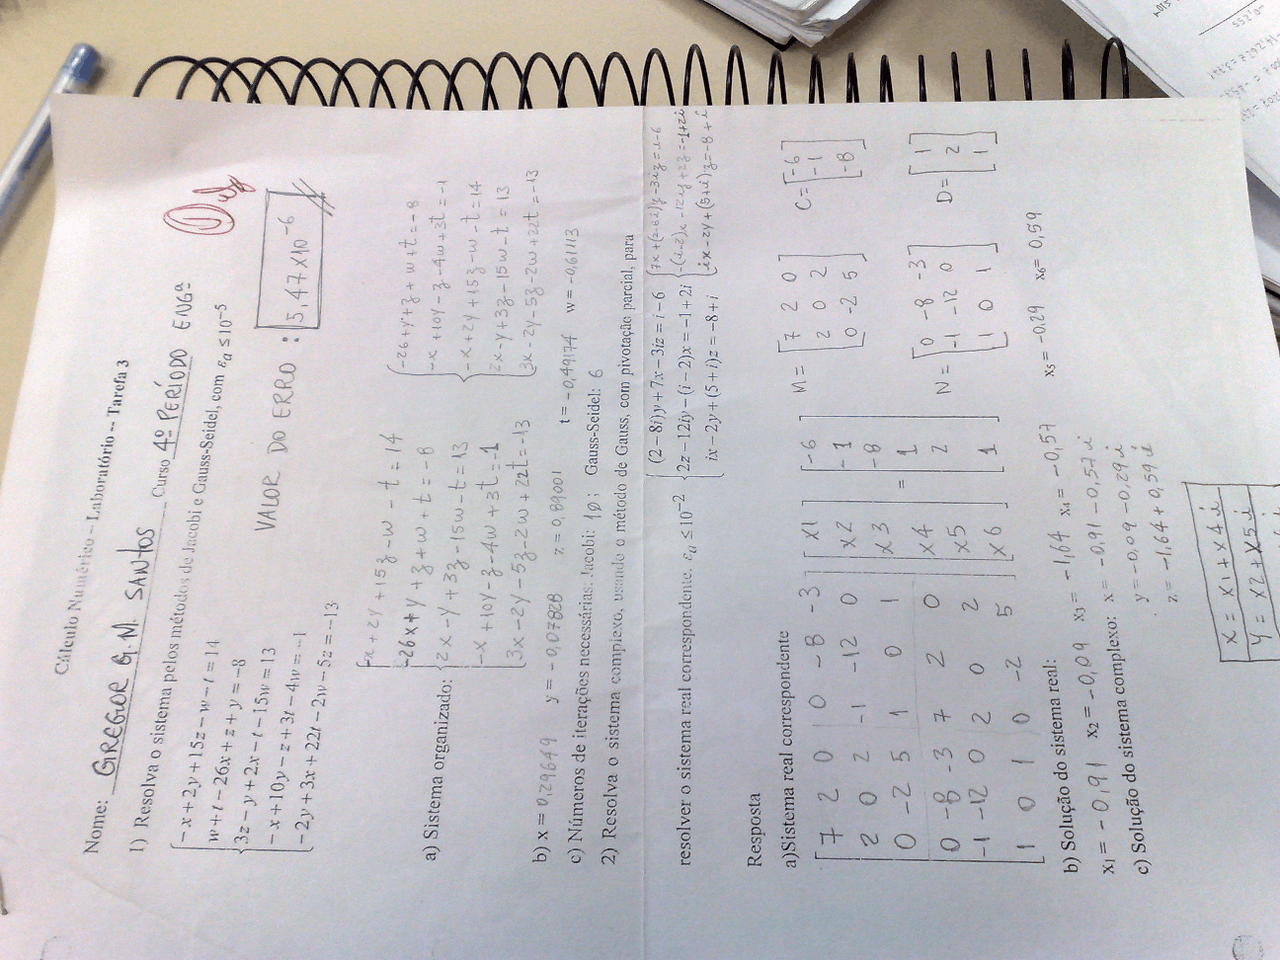 Cálculo Numérico – Laboratório – Tarefa 3
Nome: GREGOR G.M. SANTOS Curso 4º PERÍODO ENGª
1) Resolva o sistema pelos métodos de Jacobi e Gauss-Seidel, com εa ≤ 10⁻⁵
-x + 2y + 15z - w - t = 14
w + t - 26x + z + y = -8
3z - y + 2x - t - 15w = 13
-x + 10y - z + 3t - 4w = -1
-2y + 3x + 22t - 2w - 5z = -13
VALOR DO ERRO : 5,47X10⁻⁶
a) Sistema organizado:
-x + 2y + 15z - w - t = 14
-26x + y + z + w + t = -8
2x - y + 3z - 15w - t = 13
-x + 10y - z - 4w + 3t = -1
3x - 2y - 5z - 2w + 22t = -13
-26 + y + z + w + t = -8
-x + 10y - z - 4w + 3t = -1
-x + 2y + 15z - w - t = 14
2x - y + 3z - 15w - t = 13
3x - 2y - 5z - 2w + 22t = -13
b) x = 0,29649 y = -0,07828 z = 0,89001 t = -0,49174 w = -0,61113
c) Números de iterações necessárias: Jacobi: 10 ; Gauss-Seidel: 6
2) Resolva o sistema complexo, usando o método de Gauss, com pivotação parcial, para
resolver o sistema real correspondente. εa ≤ 10⁻²
(2 - 8i)y + 7x - 3iz = i - 6
2z - 12iy - (i - 2)x = -1 + 2i
ix - 2y + (5 + i)z = -8 + i
7x + (2-8i)y - 3iz = i - 6
-(i-2)x - 12iy + 2z = -1+2i
ix - 2y + (5+i)z = -8 + i
Resposta
a)Sistema real correspondente
7 2 0 0 -8 -3 x1 -6
2 0 2 -1 -12 0 x2 -1
0 -2 5 1 0 1 x3 -8
0 -8 -3 7 2 0 x4 = 1
-1 -12 0 2 0 2 x5 2
1 0 1 0 -2 5 x6 1
M = 7 2 0
2 0 2
0 -2 5
C = -6
-1
-8
N = 0 -8 -3
-1 -12 0
1 0 1
D = 1
2
1
b) Solução do sistema real:
x1 = -0,91 x2 = -0,09 x3 = -1,64 x4 = -0,57 x5 = -0,29 x6 = 0,59
c) Solução do sistema complexo: x = -0,91 - 0,57i
y = -0,09 - 0,29i
z = -1,64 + 0,59i
X = X1 + X4i
Y = X2 + X5i